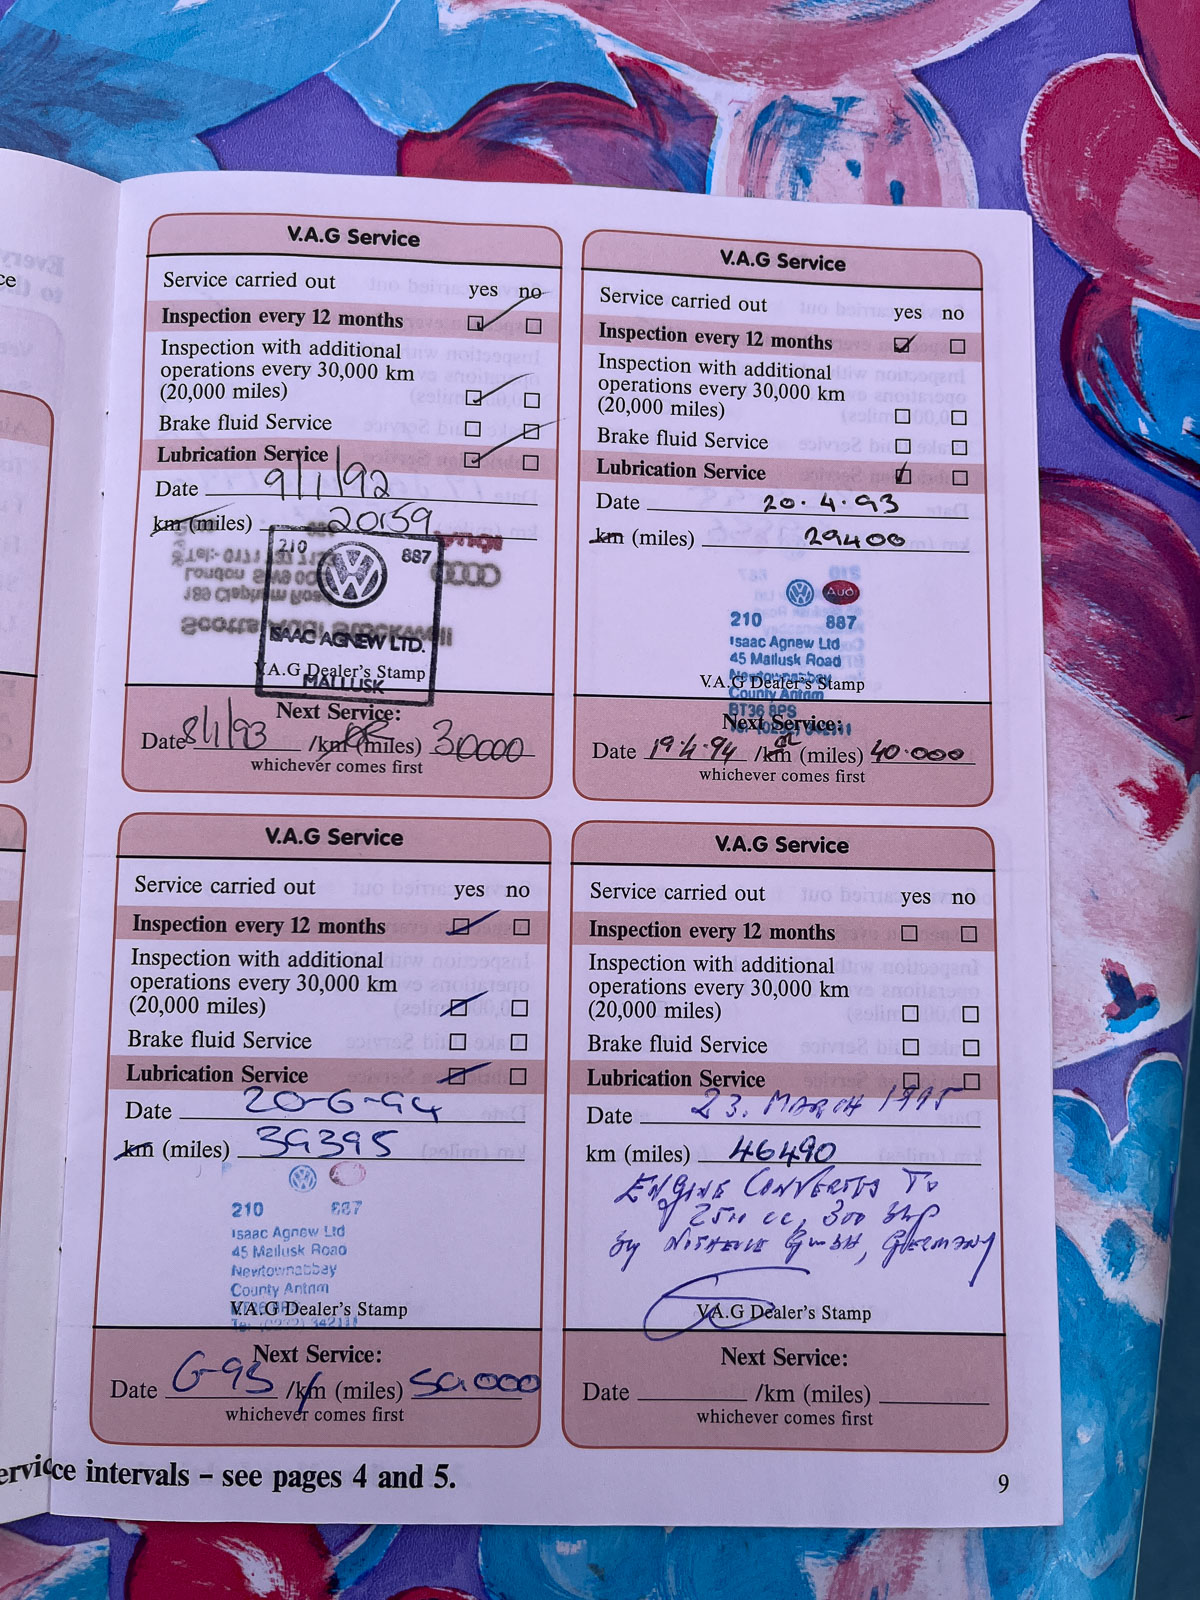 V.A.G Service
Service carried out yes no
Inspection every 12 months
Inspection with additional
operations every 30,000 km
(20,000 miles)
Brake fluid Service
Lubrication Service
Date 9/1/92
km (miles) 20159
210 887
ISAAC AGNEW LTD.
V.A.G Dealer's Stamp
MALLUSK
Next Service:
Date 8/1/93 /km (miles) 30000
whichever comes first
V.A.G Service
Service carried out yes no
Inspection every 12 months
Inspection with additional
operations every 30,000 km
(20,000 miles)
Brake fluid Service
Lubrication Service
Date 20.4.93
km (miles) 29400
Audi
210 887
Isaac Agnew Ltd
45 Mallusk Road
Newtownabbey
V.A.G Dealer's Stamp
County Antrim
BT36 8PS
Next Service:
Tel: (0232) 342111
Date 19.4.94 /km (miles) 40.000
whichever comes first
V.A.G Service
Service carried out yes no
Inspection every 12 months
Inspection with additional
operations every 30,000 km
(20,000 miles)
Brake fluid Service
Lubrication Service
Date 20-6-94
km (miles) 39395
210 887
Isaac Agnew Ltd
45 Mallusk Road
Newtownabbey
County Antrim
BT36 8PS
V.A.G Dealer's Stamp
Tel: (0232) 342111
Next Service:
Date 6-95 /km (miles) 50000
whichever comes first
V.A.G Service
Service carried out yes no
Inspection every 12 months
Inspection with additional
operations every 30,000 km
(20,000 miles)
Brake fluid Service
Lubrication Service
Date 23. MARCH 1995
km (miles) 46490
ENGINE CONVERTED TO
cc, 300 bhp
by GmbH, GERMANY
V.A.G Dealer's Stamp
Next Service:
Date /km (miles)
whichever comes first
ervice intervals – see pages 4 and 5.
9